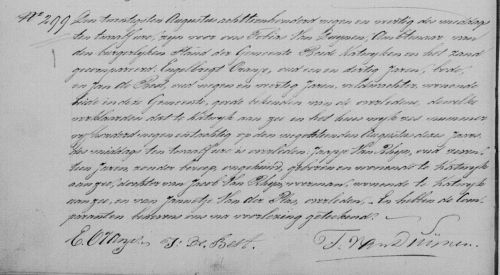 No 299
Den twintigsten Augustus achttienhonderd negen en veertig des middags
ten twaalf ure, zijn voor ons Van Duynen, Ambtenaar van
den burgerlijken Stand der Gemeente Beide Katwyken en het Zand
gecompareerd, Engelbregt Oranje, oud een en dertig Jaren, bode,
en Jan de Best, oud negen en veertig Jaren, veldwachter, wonende
beide in deze Gemeente, goede bekenden van de overledene, dewelke
verklaarden dat te Katwyk aan Zee en het huis wyk zes nummer
vyfhonderd negen en tachtig op den negentienden Augustus dezes Jaars
des middags ten twaalf ure is overleden Van Rhyn, oud
tien Jaren, zonder beroep, ongehuwd, geboren en wonende te Katwyk
aan Zee, dochter van Jacob Van Rhyn, voerman, wonende te Katwyk
aan Zee, en van Jannetje Van der Plas, overleden. En hebben de Com-
paranten benevens ons na voorlezing geteekend.
E. Oranje. J. De Best. Van Duijnen